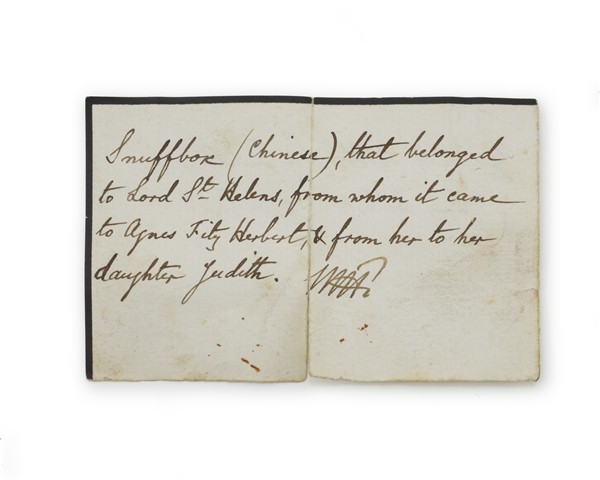 Snuffbox (Chinese), that belonged
to Lord St. Helens, from whom it came
to Agnes Fitz Herbert, & from her to her
daughter Judith.